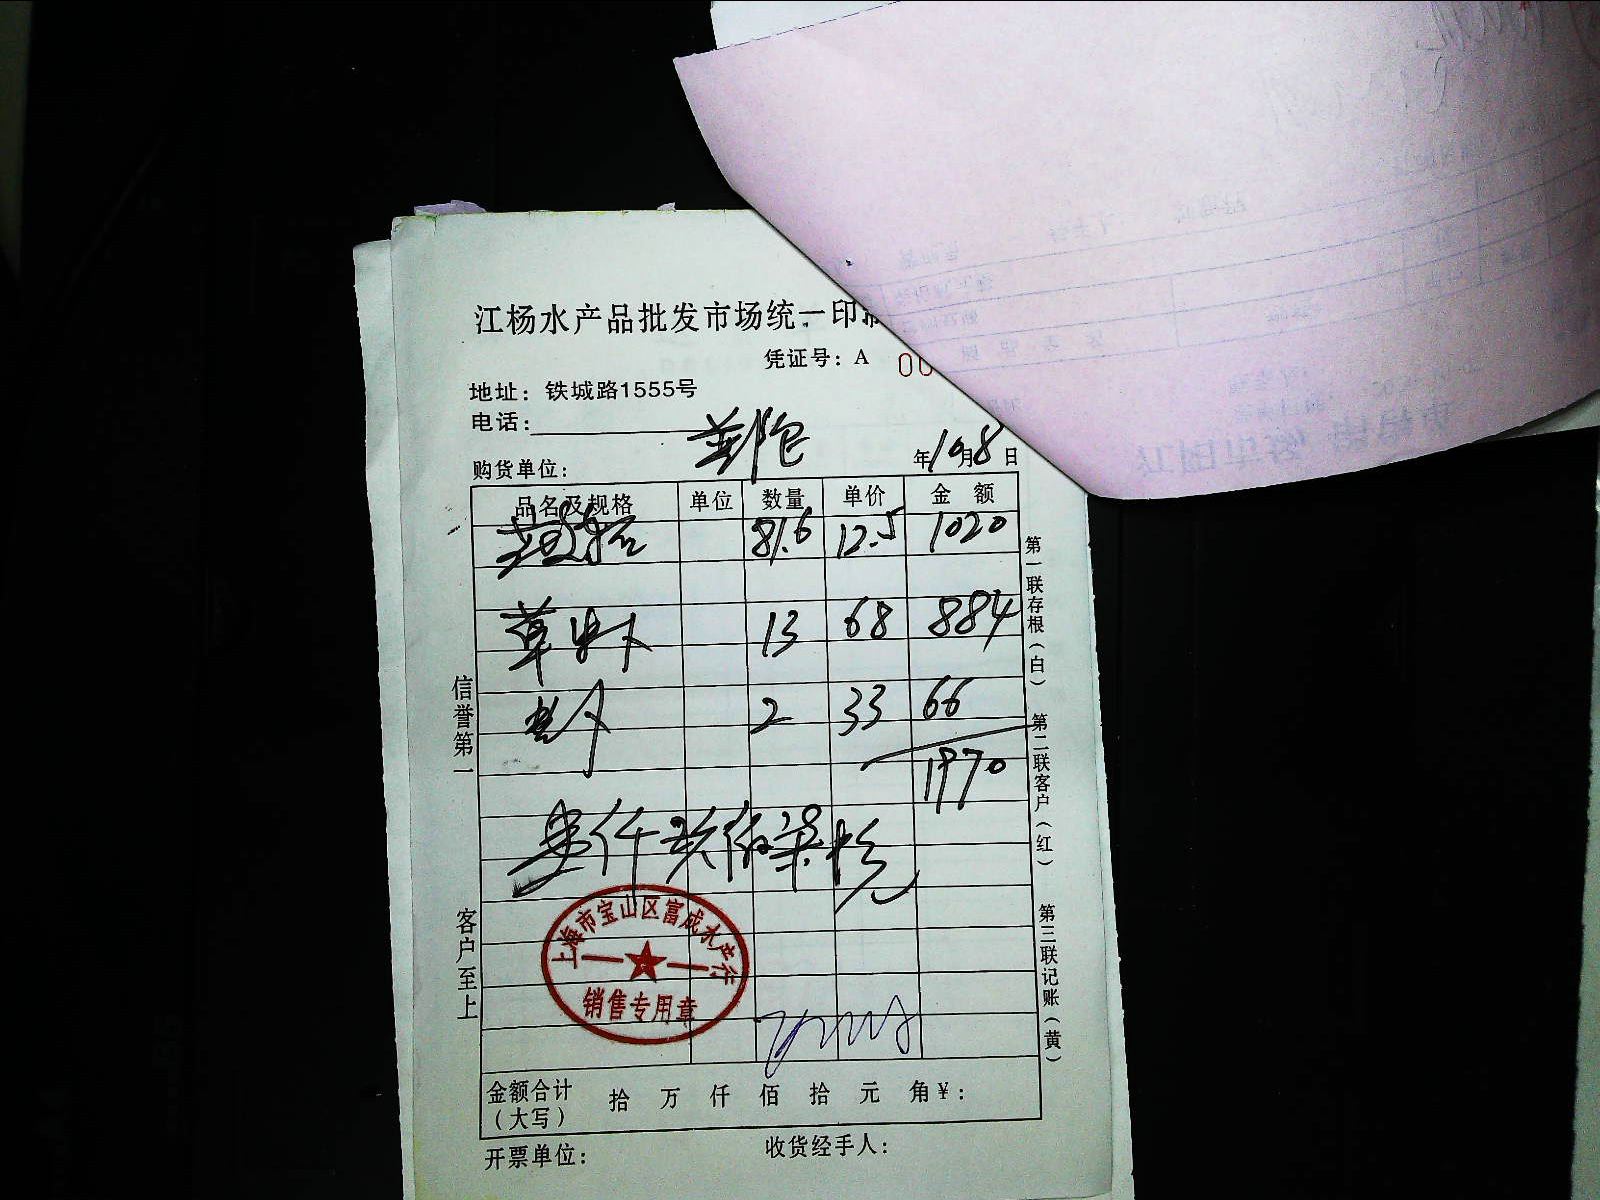 江杨水产品批发市场统一印
凭证号：A 00
地址：铁城路1555号
电话：
购货单位： 年10月8日
品名及规格 单位 数量 单价 金 额
81.6 12.5 1020
草虾 13 68 884
2 33 66
1970
壹仟玖佰柒拾元
上海市宝山区富成水产行
销售专用章
金额合计（大写） 拾 万 仟 佰 拾 元 角￥：
开票单位： 收货经手人：
信誉第一 客户至上
第一联存根（白） 第二联客户（红） 第三联记账（黄）